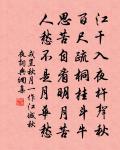 江干入夜杵聲秋
百尺疏桐挂斗牛
思苦自看明月苦
人愁不是月華愁
戎昱秋月一作江城秋
夜詞典網集